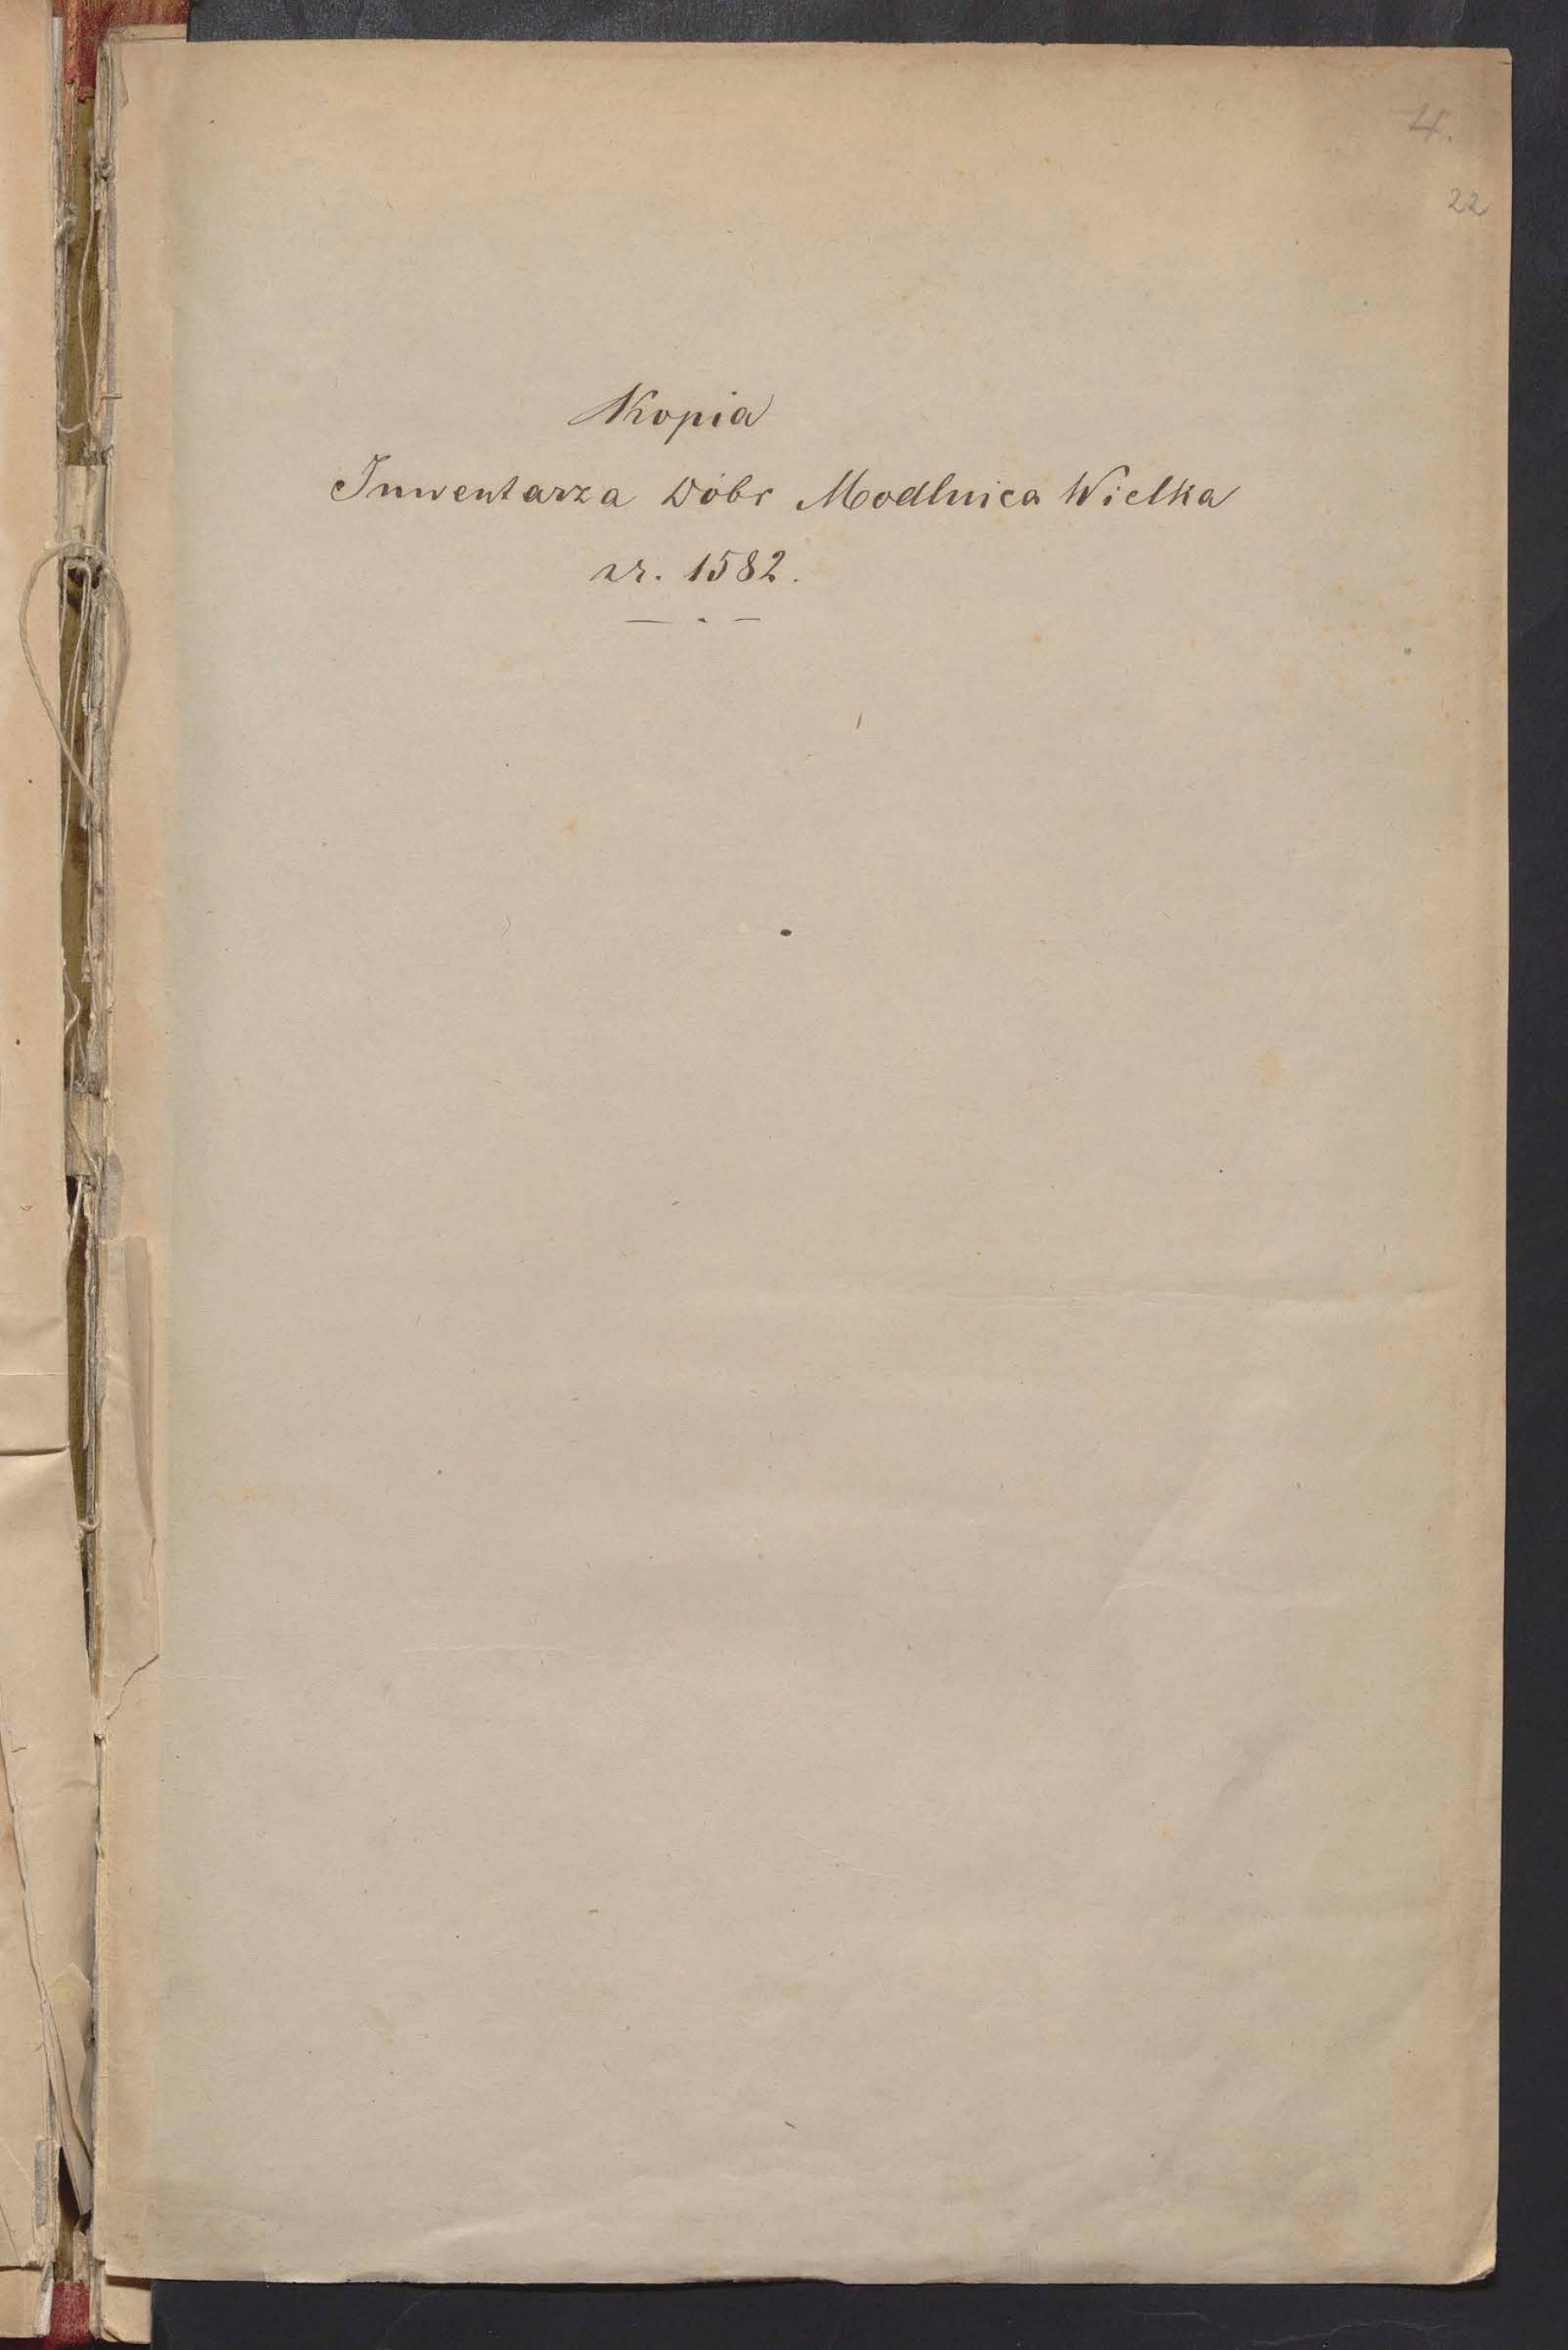 4.
22
Kopia
Inwentarza Dóbr Modlnica Wielka
zr. 1582.